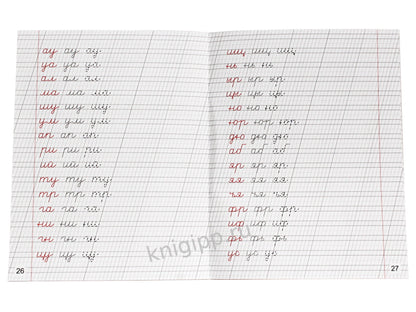 ау ау ау
уа уа уа
ал ал ал
ма ма ма
шу шу шу
ум ум ум
ап ап ап
ри ри ри
ий ий ий
ту ту ту
тр тр тр
га га га
ни ни ни
гн гн гн
цу цу цу
26
щц щц щц
нь нь нь
ыр ыр ыр
цы цы цы
но но но
юр юр юр
дю дю дю
аб аб аб
яр яр яр
яя яя яя
чя чя чя
фр фр фр
иф иф иф
фь фь фь
ус ус ус
27
knigipp.ru